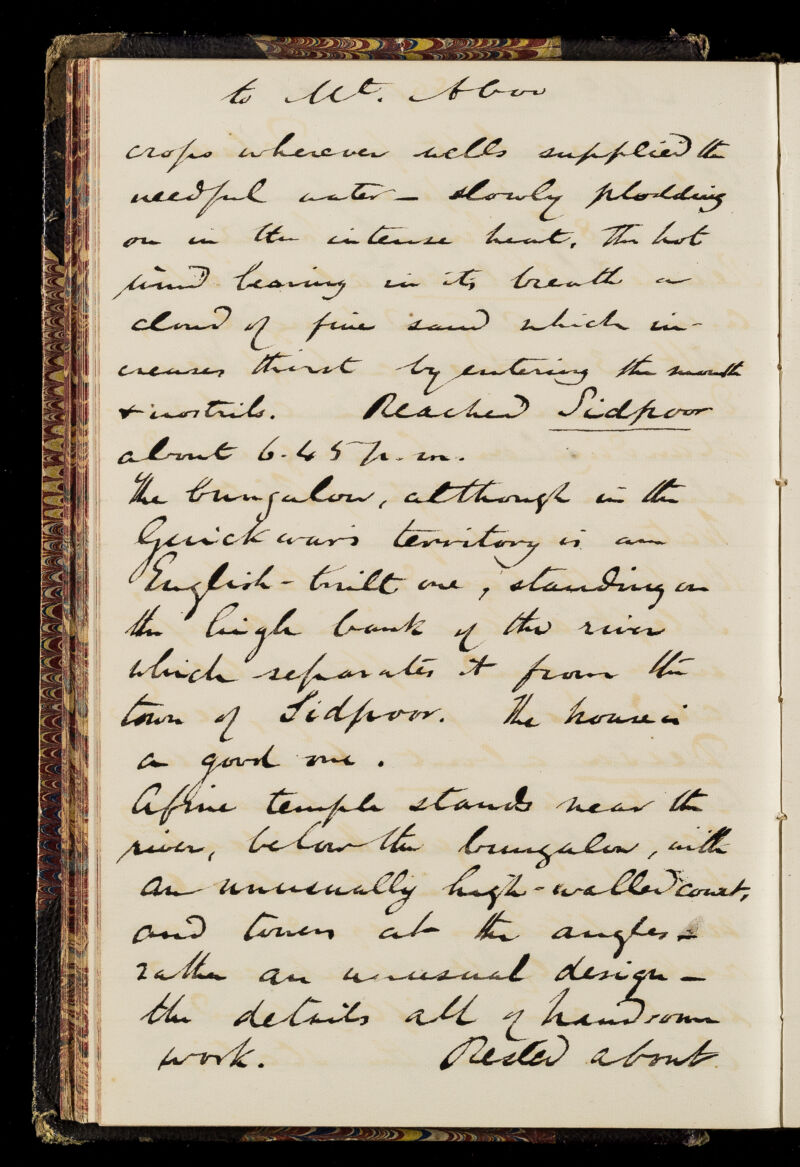 to Mt. Aboo
crops wherever wells supplied the
needful water — slowly plodding
on in the intense heat. The hot
wind bearing in its breath a
cloud of fine sand which in-
creases thirst by entering the mouth
& nostrils. Reached Sidpoor
about 6.45 p.m.
The bungalow, although in the
Guickwar's territory is an
English-built one, standing on
the high bank of the river
which separates it from the
town of Sidpoor. The house is
a good one.
A fine temple stands near the
river, below the bungalow, with
an unusually high-walled court,
and towers at the angles —
rather an unusual design —
the details all of handsome
work. Rested about